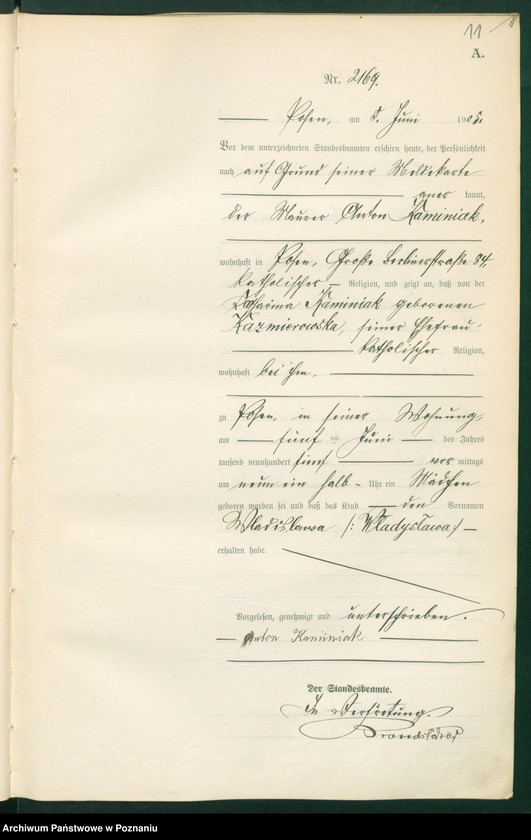 11
A.
Nr. 2169.
Posen, am 8. Juni 1905.
Vor dem unterzeichneten Standesbeamten erschien heute, der Persönlichkeit
nach auf Grund seiner Meldekarte
aner kannt,
der Maurer Anton Kaminiak,
wohnhaft in Posen, Große Berlinerstraße 84,
katholischer Religion, und zeigt an, daß von der
Katharina Kaminiak geborenen
Kazmierowska, seiner Ehefrau
katholischer Religion,
wohnhaft bei ihm,
zu Posen, in seiner Wohnung,
am fünften Juni des Jahres
tausend neunhundert fünf vor mittags
um neun ein halb Uhr ein Mädchen
geboren worden sei und daß das Kind den Vornamen
Wladislawa /: Władysława :/
erhalten habe.
Vorgelesen, genehmigt und unterschrieben.
Anton Kaminiak
Der Standesbeamte.
In Vertretung.
Archiwum Państwowe w Poznaniu